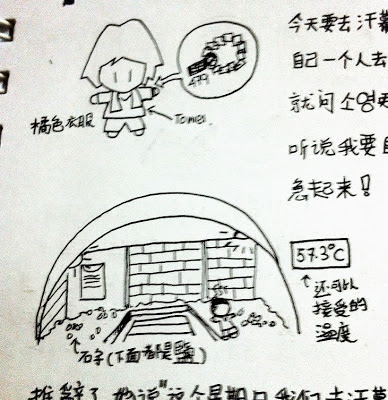 今天要去汗
自己一个人去
就问 소영
听说我要
急起来!
479
橘色衣服
Towel
57.3°C
还可以
接受的
温度
石子(下面都是鹽)
说"这个星期日我们去汗